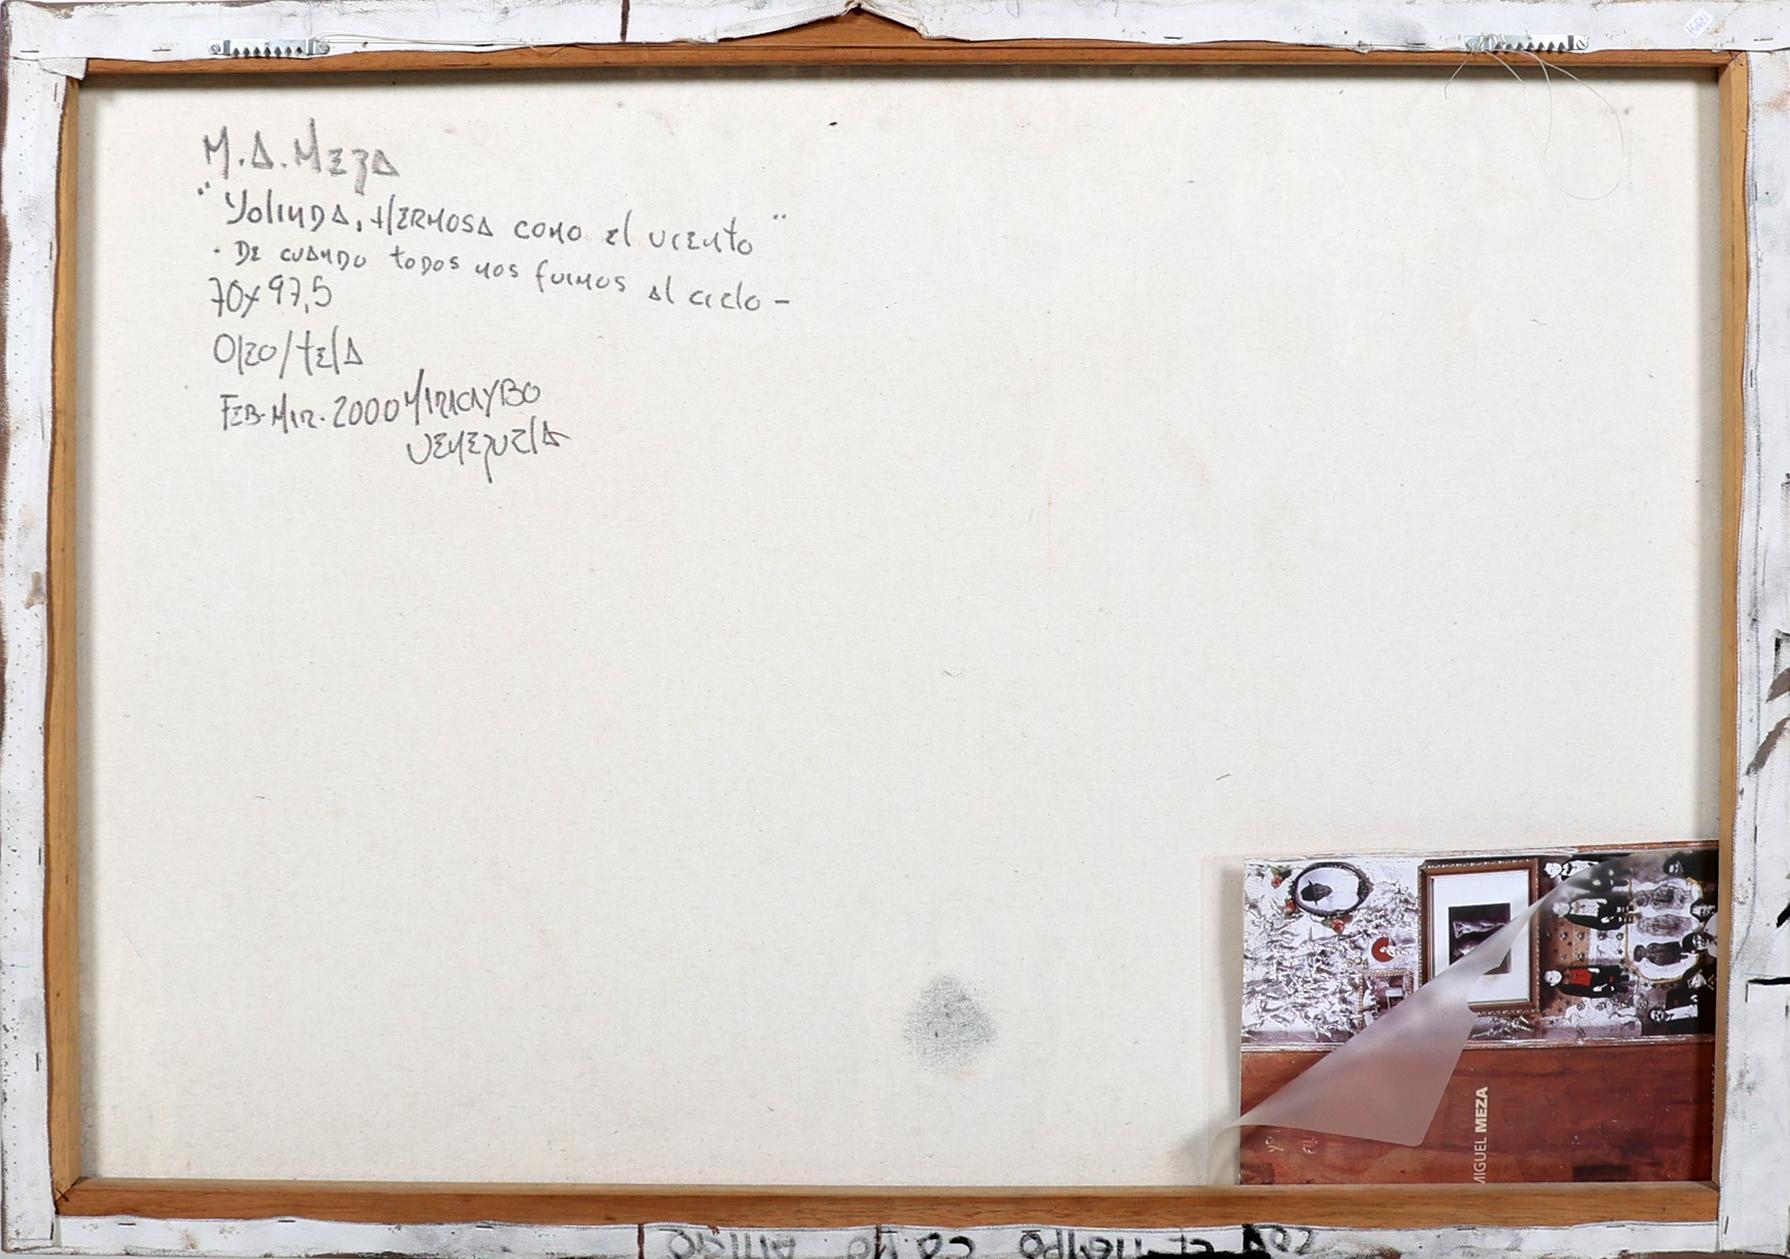 M.A.MEZA
"YOLINDA, HERMOSA COMO El VIENTO"
. DE CUANDO TODOS NOS fUIMOS Al CIElO -
70x97,5
OlEO/tElA
FEB-MAR-2000 MARACAYBO
VENEZUElA
MIGUEL MEZA
CON EL TIEMPO COMO AMIGO